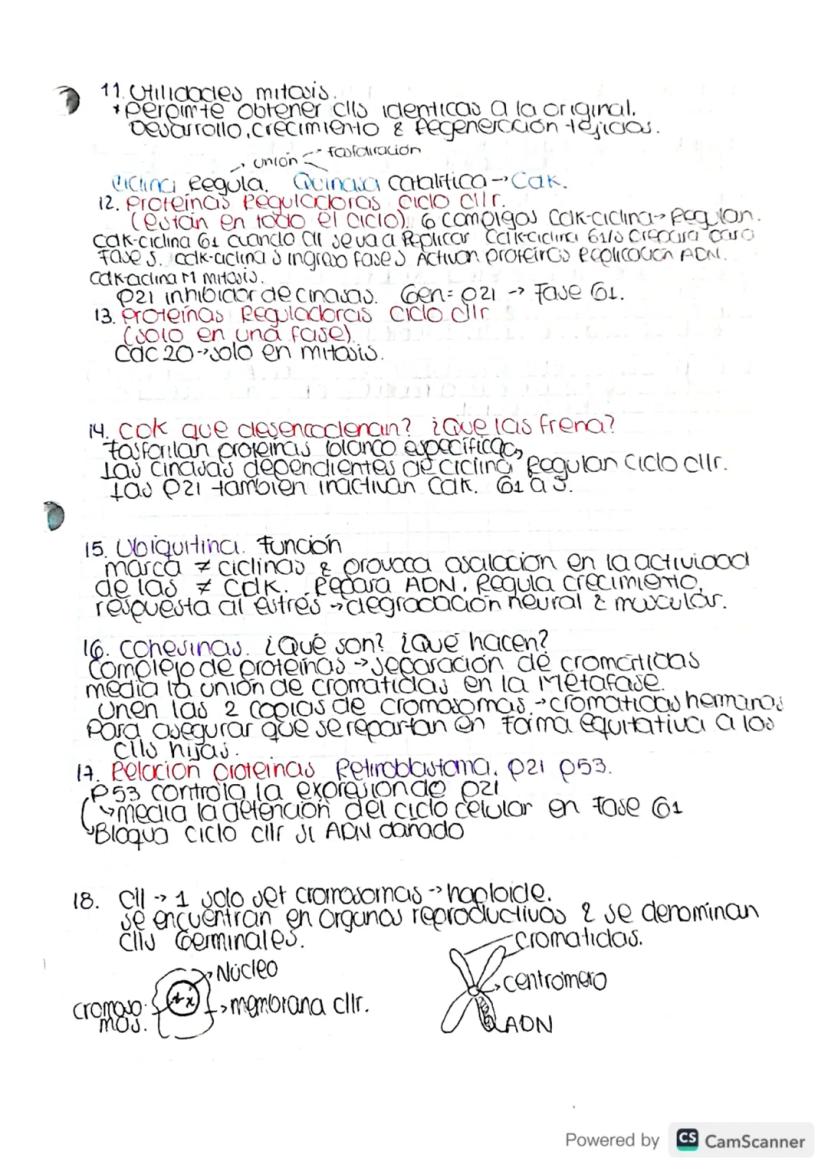 11. Utilidades mitosis.
* permite obtener clls identicas a la original.
Desarrollo, crecimiento & Regenerción tejidos.
→ unión - → fosforilación
Ciclina Regula. Quinasa catalítica → Cdk.
12. Proteínas Reguladoras ciclo cllr.
(están en todo el ciclo) 6 complejos Cdk-ciclina → Regulan.
Cdk-ciclina G1 cuando cll se va a Replicar Cdk-ciclina G1/S prepara para
Fase S. Cdk-ciclina S ingreso fase S Activan proteínas Replicación ADN.
Cdk-ciclina M mitosis.
p21 inhibidor de cinasas. Gen = p21 → Fase G1.
13. Proteínas Reguladoras ciclo cllr
(solo en una fase)
Cdc 20 → solo en mitosis.
14. Cdk que desencadenan? ¿Que las frena?
Fosforilan proteinas blanco especificac,
Las cinasas dependientes de ciclina Regulan ciclo cllr.
Las P21 tambien inactivan Cdk. G1 a S.
15. Ubiquitina. Función
marca ≠ ciclinas & provoca asalacion en la actividad
de las ≠ Cdk. Repara ADN. Regula crecimiento,
respuesta al estrés → degradación neural & muscular.
16. Cohesinas. ¿Qué son? ¿Qué hacen?
Complejo de proteínas → separación de cromátidas
media la unión de cromatidas en la Metafase.
Unen las 2 copias de cromosomas. → cromatidas hermanas
Para asegurar que se repartan en forma equitativa a los
clls hijas.
17. Relación proteinas Retiroblastoma. p21 p53.
P53 controla la expresion de p21
→ media la detención del ciclo celular en fase G1
Bloqua ciclo cllr si ADN dañado
18. Cll → 1 solo set cromosomas → haploide.
se encuentran en organos reproductivos & se denominan
clls Germinales.
cromatidas.
Núcleo
centromero
cromoso-
mos.
membrana cllr.
ADN
Powered by CS CamScanner